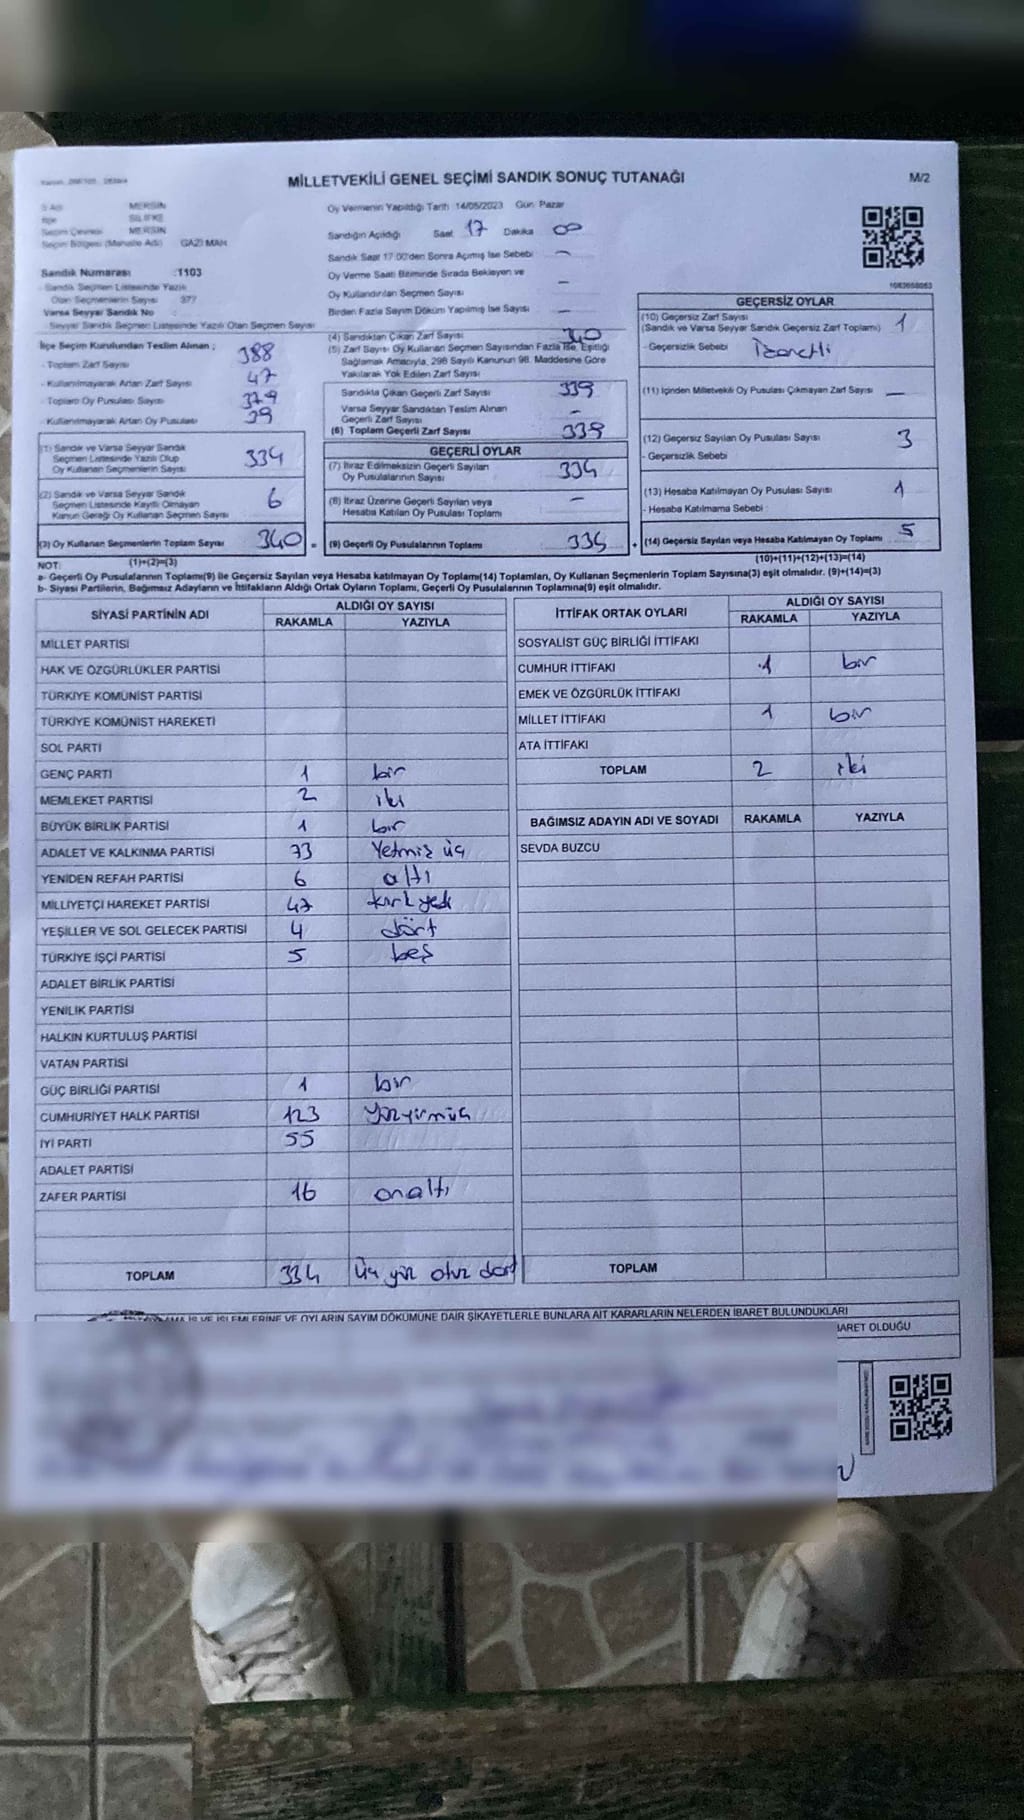 MİLLETVEKİLİ GENEL SEÇİMİ SANDIK SONUÇ TUTANAĞI
M/2
MERSİN
SİLİFKE
Seçim Çevresi MERSİN
Seçim Bölgesi (Mahalle Adı) GAZİ MAH.
Sandık Numarası :1103
Sandık Seçmen Listesinde Yazılı
Olan Seçmenlerin Sayısı 377
Varsa Seyyar Sandık No
Seyyar Sandık Seçmen Listesinde Yazılı Olan Seçmen Sayısı
Oy Vermenin Yapıldığı Tarih 14/05/2023 Gün Pazar
Sandığın Açıldığı Saat 17 Dakika 00
Sandık Saat 17:00'den Sonra Açılmış İse Sebebi —
Oy Verme Saati Bitiminde Sırada Bekleyen ve
Oy Kullandırılan Seçmen Sayısı —
Birden Fazla Sayım Döküm Yapılmış İse Sayısı —
İlçe Seçim Kurulundan Teslim Alınan ;
- Toplam Zarf Sayısı 388
- Kullanılmayarak Artan Zarf Sayısı 47
- Toplam Oy Pusulası Sayısı 379
- Kullanılmayarak Artan Oy Pusulası 39
(1) Sandık ve Varsa Seyyar Sandık
Seçmen Listesinde Yazılı Olup
Oy Kullanan Seçmenlerin Sayısı 334
(2) Sandık ve Varsa Seyyar Sandık
Seçmen Listesinde Kayıtlı Olmayan
Kanun Gereği Oy Kullanan Seçmen Sayısı 6
(3) Oy Kullanan Seçmenlerin Toplam Sayısı 340
(4) Sandıktan Çıkan Zarf Sayısı 340
(5) Zarf Sayısı Oy Kullanan Seçmen Sayısından Fazla İse, Eşitliği
Sağlamak Amacıyla, 298 Sayılı Kanunun 98. Maddesine Göre
Yakılarak Yok Edilen Zarf Sayısı
Sandıkta Çıkan Geçerli Zarf Sayısı 339
Varsa Seyyar Sandıktan Teslim Alınan
Geçerli Zarf Sayısı —
(6) Toplam Geçerli Zarf Sayısı 339
GEÇERLİ OYLAR
(7) İtiraz Edilmeksizin Geçerli Sayılan
Oy Pusulalarının Sayısı 334
(8) İtiraz Üzerine Geçerli Sayılan veya
Hesaba Katılan Oy Pusulası Toplamı —
= (9) Geçerli Oy Pusulalarının Toplamı 335
GEÇERSİZ OYLAR
(10) Geçersiz Zarf Sayısı
(Sandık ve Varsa Seyyar Sandık Geçersiz Zarf Toplamı) 1
- Geçersizlik Sebebi İşaretli
(11) İçinden Milletvekili Oy Pusulası Çıkmayan Zarf Sayısı —
(12) Geçersiz Sayılan Oy Pusulası Sayısı 3
- Geçersizlik Sebebi
(13) Hesaba Katılmayan Oy Pusulası Sayısı 1
- Hesaba Katılmama Sebebi
+ (14) Geçersiz Sayılan veya Hesaba Katılmayan Oy Toplamı 5
NOT: (1)+(2)=(3)
(10)+(11)+(12)+(13)=(14)
a- Geçerli Oy Pusulalarının Toplamı(9) ile Geçersiz Sayılan veya Hesaba katılmayan Oy Toplamı(14) Toplamları, Oy Kullanan Seçmenlerin Toplam Sayısına(3) eşit olmalıdır. (9)+(14)=(3)
b- Siyasi Partilerin, Bağımsız Adayların ve İttifakların Aldığı Ortak Oyların Toplamı, Geçerli Oy Pusulalarının Toplamına(9) eşit olmalıdır.
SİYASİ PARTİNİN ADI ALDIĞI OY SAYISI
RAKAMLA YAZIYLA
MİLLET PARTİSİ
HAK VE ÖZGÜRLÜKLER PARTİSİ
TÜRKİYE KOMÜNİST PARTİSİ
TÜRKİYE KOMÜNİST HAREKETİ
SOL PARTİ
GENÇ PARTİ 1 bir
MEMLEKET PARTİSİ 2 iki
BÜYÜK BİRLİK PARTİSİ 1 bir
ADALET VE KALKINMA PARTİSİ 73 Yetmiş üç
YENİDEN REFAH PARTİSİ 6 altı
MİLLİYETÇİ HAREKET PARTİSİ 47 kırk yedi
YEŞİLLER VE SOL GELECEK PARTİSİ 4 dört
TÜRKİYE İŞÇİ PARTİSİ 5 beş
ADALET BİRLİK PARTİSİ
YENİLİK PARTİSİ
HALKIN KURTULUŞ PARTİSİ
VATAN PARTİSİ
GÜÇ BİRLİĞİ PARTİSİ 1 bir
CUMHURİYET HALK PARTİSİ 123
İYİ PARTİ 55
ADALET PARTİSİ
ZAFER PARTİSİ 16 onaltı
TOPLAM 334 Üç yüz otuz dört
İTTİFAK ORTAK OYLARI ALDIĞI OY SAYISI
RAKAMLA YAZIYLA
SOSYALİST GÜÇ BİRLİĞİ İTTİFAKI
CUMHUR İTTİFAKI 1 bir
EMEK VE ÖZGÜRLÜK İTTİFAKI
MİLLET İTTİFAKI 1 bir
ATA İTTİFAKI
TOPLAM 2 iki
BAĞIMSIZ ADAYIN ADI VE SOYADI RAKAMLA YAZIYLA
SEVDA BUZCU
TOPLAM
İŞ VE İŞLEMLERİNE VE OYLARIN SAYIM DÖKÜMÜNE DAİR ŞİKAYETLERLE BUNLARA AİT KARARLARIN NELERDEN İBARET BULUNDUKLARI
İBARET OLDUĞU